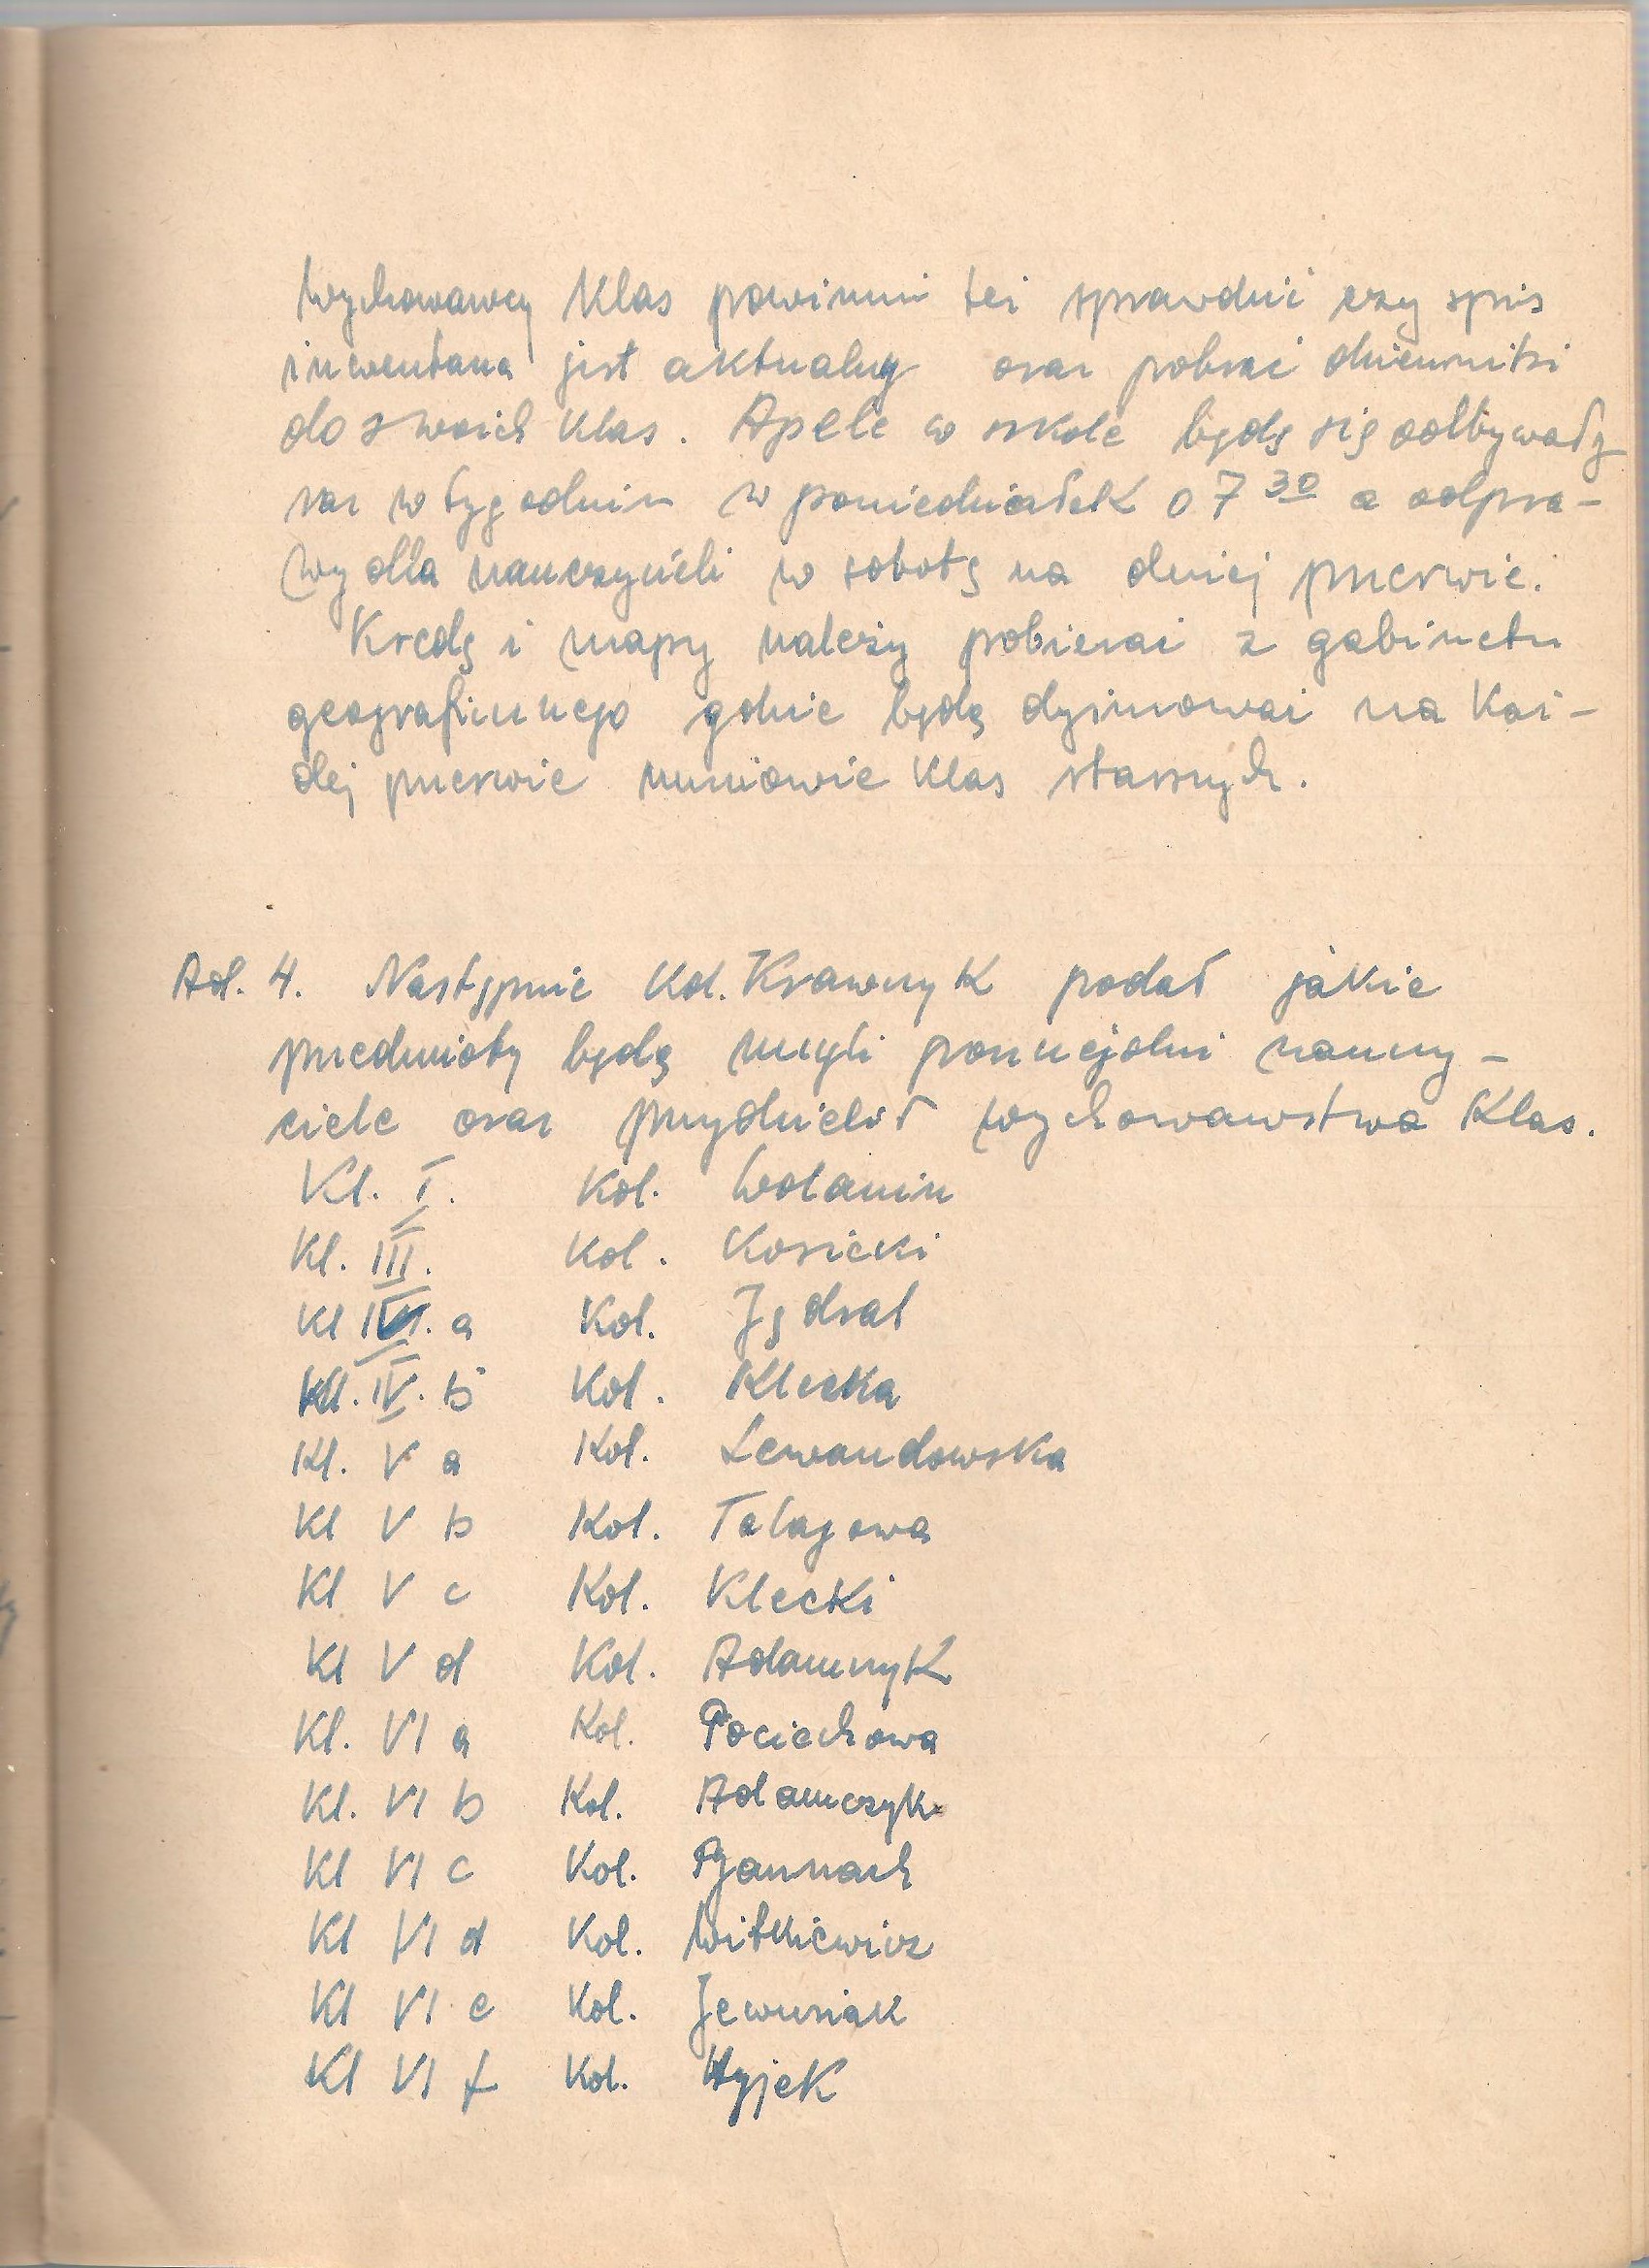 Wychowawcy klas powinni też sprawdzić czy spis
inwentarza jest aktualny oraz pobrać dzienniki
do swoich klas. Apele w szkole będą się odbywały
raz w tygodniu w poniedziałek o 7 30 a odpra-
wy dla nauczycieli w sobotę na dużej przerwie.
Kredę i mapy należy pobierać z gabinetu
geograficznego gdzie będą dyżurować na każ-
dej przerwie uczniowie klas starszych.
Ad. 4. Następnie kol. Krawczyk podał jakie
przedmioty będą uczyli poszczególni nauczy-
ciele oraz przydzielił wychowawstwa klas.
Kl. I. Kol. Wolanin
Kl. III. Kol. Kosicki
Kl IV. a Kol. Jędral
Kl. IV. b Kol. Klecka
Kl. V a Kol. Lewandowska
Kl V b Kol. Talagowa
Kl V c Kol. Klecki
Kl V d Kol. Adamczyk
Kl. VI a Kol. Pociechowa
Kl. VI b Kol. Adamczyk
Kl VI c Kol.
Kl VI d Kol. Witkiewicz
Kl VI e Kol. Jewusiak
Kl VI f Kol. Wyjek